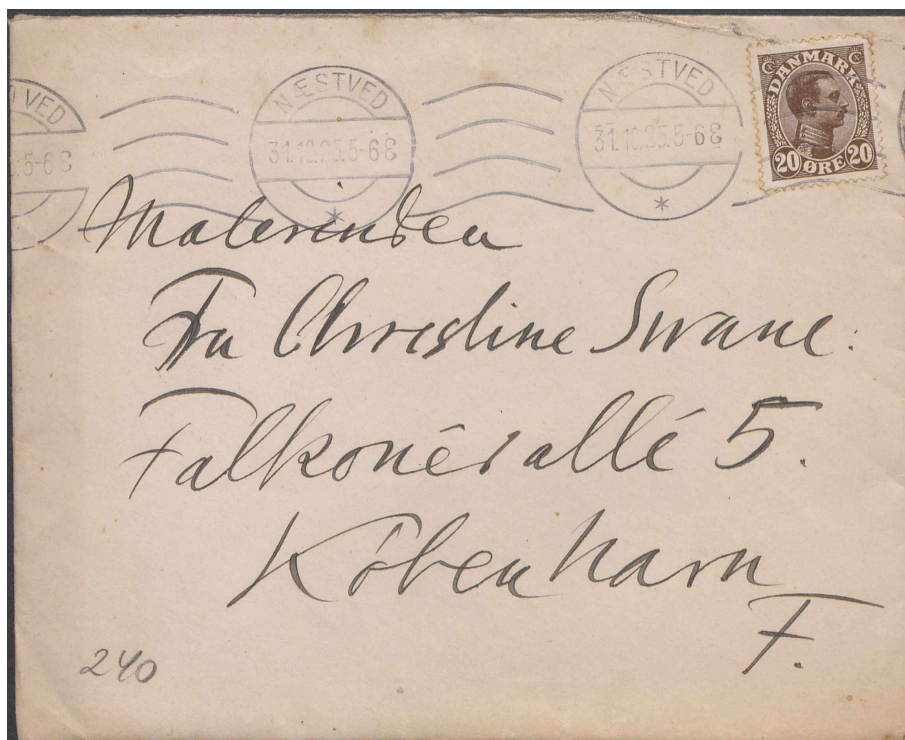 NÆSTVED
31.10.25.5-6 8
NÆSTVED
31.10.25.5-6 8
DANMARK
20 ØRE 20
Malerinden
Fru Christine Swane.
Falkonérallé 5.
København
F.
240